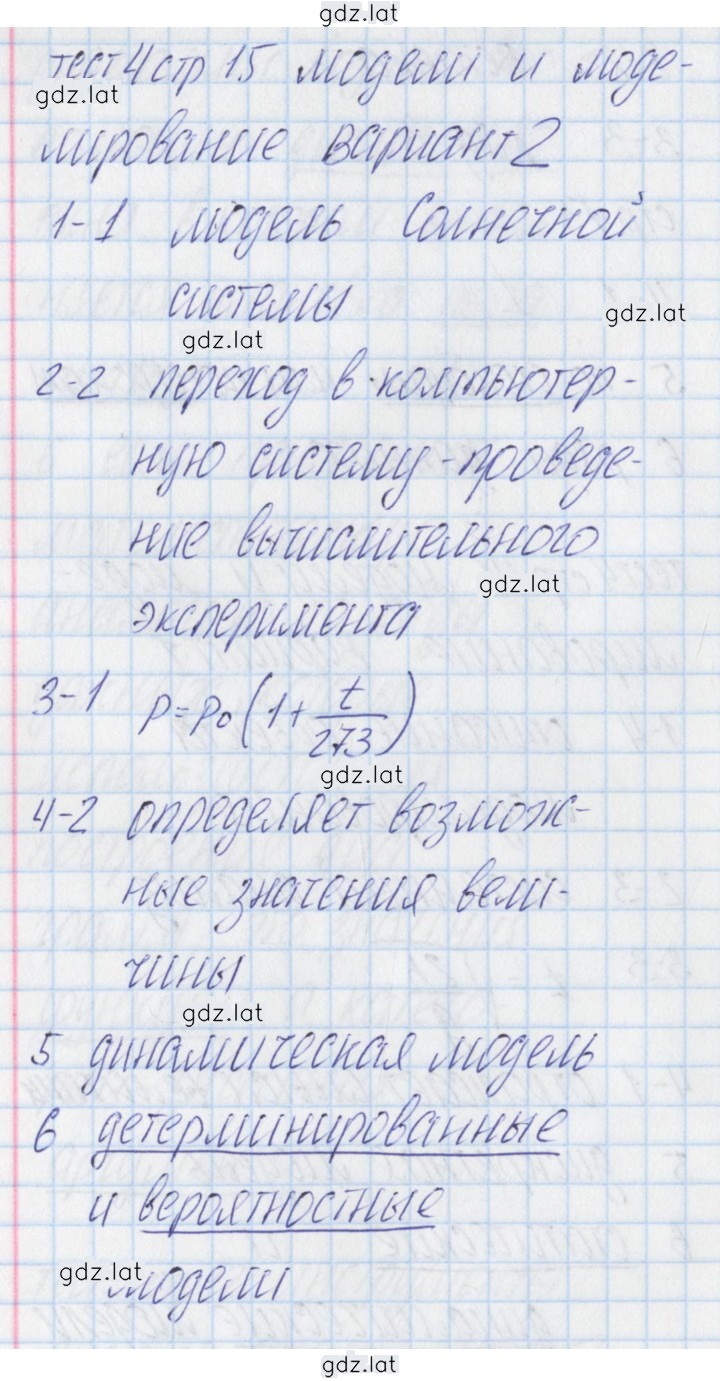 gdz.lat
тест 4 стр 15 модели и моде-
gdz.lat
лирование вариант 2
1-1 модель Солнечной
системы
gdz.lat
gdz.lat
2-2 переход в компьютер-
ную систему - проведе-
ние вычислительного
gdz.lat
эксперимента
3-1 P=P₀(1+t/273)
gdz.lat
4-2 определяет возмож-
ные значения вели-
чины
gdz.lat
5 динамическая модель
6 детерминированные
и вероятностные
gdz.lat
модели
gdz.lat